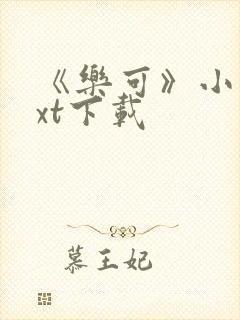 《樂可》小
xt下載
慕王妃